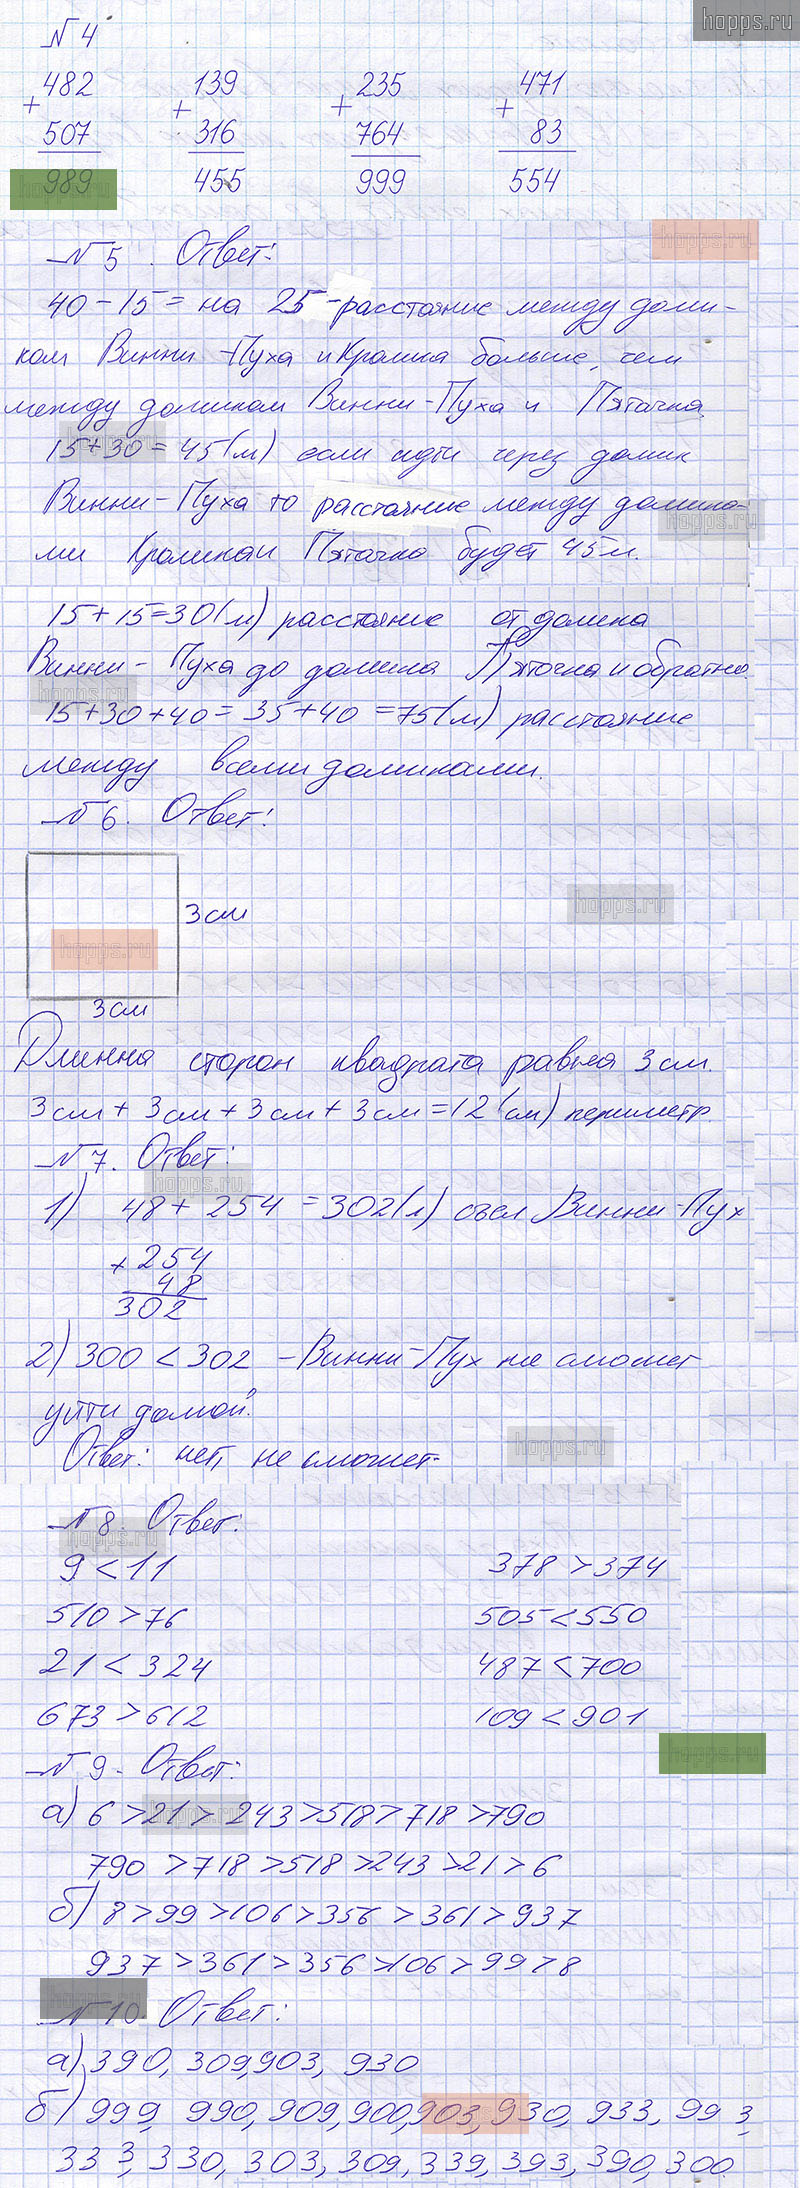 hopps.ru
№4
482 139 235 471
+ + + +
507 316 764 83
989 455 999 554
hopps.ru
№5. Ответ:
hopps.ru
40-15= на 25-расстояние между доми-
ком Винни-Пуха и Кролика больше, чем
между домиком Винни-Пуха и Пяточка
15+30=45(м) если идти через домик
hopps.ru
Винни-Пуха то расстояние между домика-
hopps.ru
ми Кролика и Пяточка будет 45м.
15+15=30(м) расстояние от домика
Винни-Пуха до домика Пяточка и обратно.
hopps.ru
15+30+40=35+40=75(м) расстояние
между всеми домиками.
№6. Ответ:
hopps.ru
3см
hopps.ru
3см
Длинна сторон квадрата равна 3см.
3см+3см+3см+3см=12(см) периметр.
№7. Ответ:
hopps.ru
1) 48+254=302(л) съел Винни-Пух
+254
48
302
2) 300<302 -Винни-Пух не сможет
уйти домой.
Ответ: нет, не сможет.
hopps.ru
№8. Ответ:
hopps.ru
9<11 378>374
510>76 505<550
21<324 487<700
673>612 109<901
hopps.ru
№9. Ответ:
а) 6>21>243>518>718>790
hopps.ru
790>718>518>243>21>6
б) 8>99>106>356>361>937
937>361>356>106>99>8
hopps.ru
№10. Ответ:
а) 390, 309, 903, 930
б) 999, 990, 909, 900, 903, 930, 933, 993,
hopps.ru
333, 330, 303, 309, 339, 393, 390, 300.